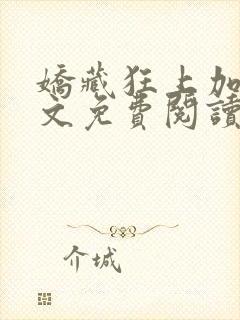 嬌藏狂上加
文免費閱讀
介城